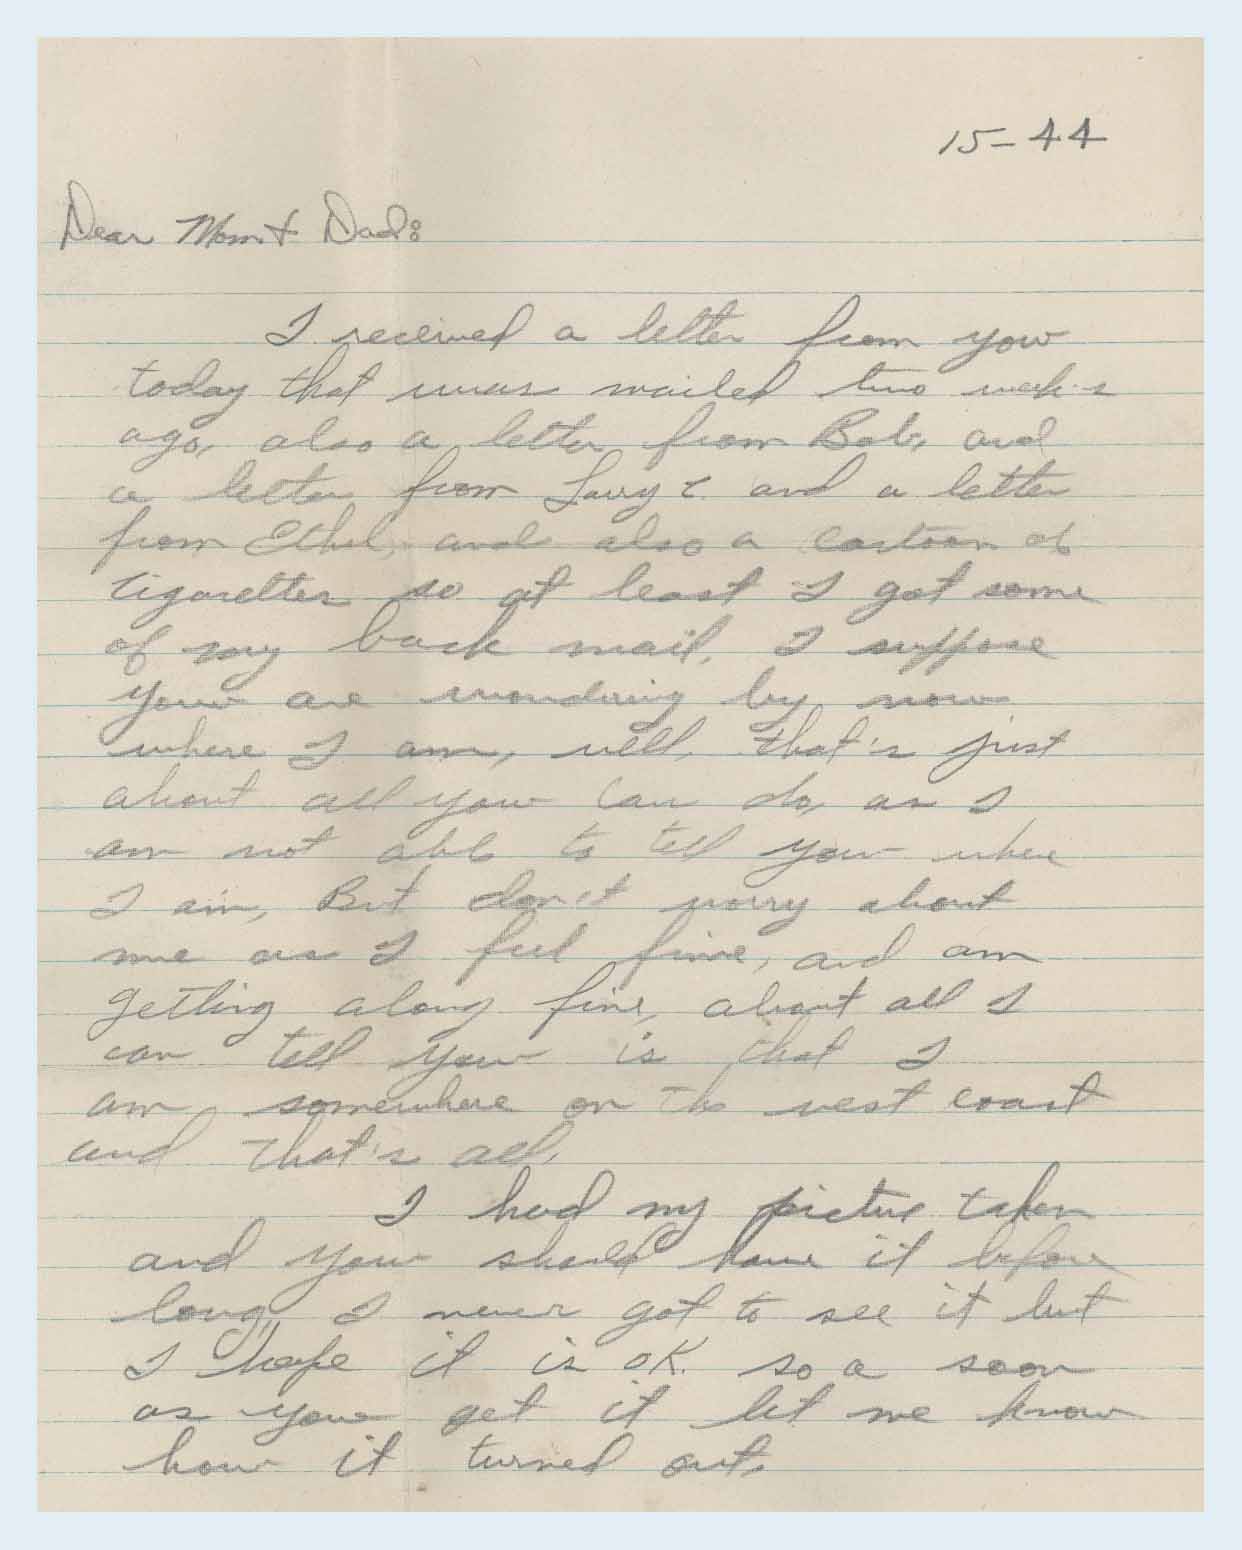 15-44
Dear Mom + Dad:
I received a letter from you
today that was mailed two weeks
ago, also a letter from Bob, and
a letter from Larry C. and a letter
from Ethel, and also a cartoon of
cigarettes so at least I got some
of my back mail. I suppose
you are wondering by now
where I am, well, that's just
about all you can do, as I
am not able to tell you where
I am, But don't worry about
me as I feel fine, and am
getting along fine, about all I
can tell you is that I
am somewhere on the west coast
and that's all.
I had my picture taken
and you should have it before
long, I never got to see it but
I hope it is OK. so a soon
as you get it let me know
how it turned out.